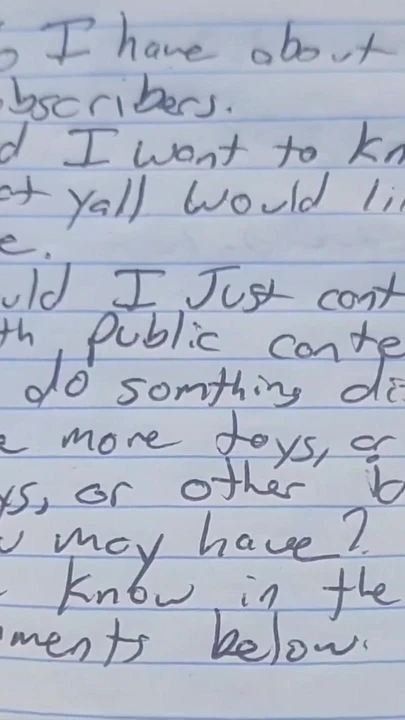 o I have about
bscribers.
d I want to kn
at yall would li
e.
uld I Just cont
th public conte
do somthing di
e more toys, or
ys, or other
u may have?
know in the
ments below.